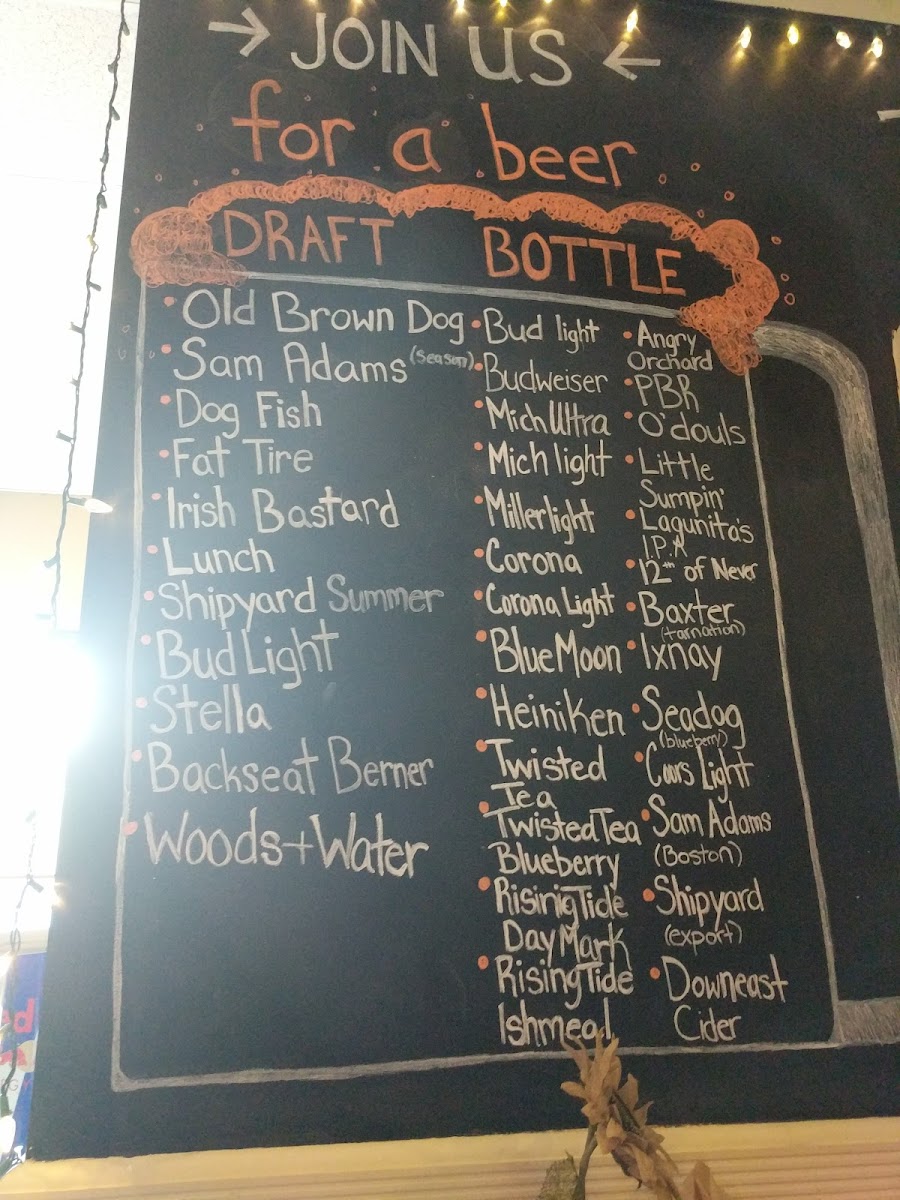 → JOIN US ←
for a beer
DRAFT
Old Brown Dog
Sam Adams (season)
Dog Fish
Fat Tire
Irish Bastard
Lunch
Shipyard Summer
Bud Light
Stella
Backseat Berner
Woods+Water
BOTTLE
Bud light
Budweiser
Mich Ultra
Mich light
Millerlight
Corona
Corona Light
Blue Moon
Heiniken
Twisted
Tea
Twisted Tea
Blueberry
Rising Tide
Day Mark
Rising Tide
Ishmeal
Angry
Orchard
PBR
O'douls
Little
Sumpin'
Lagunita's
I.P.A
12th of Never
Baxter
(tarnation)
Ixnay
Seadog
(blueberry)
Coors Light
Sam Adams
(Boston)
Shipyard
(export)
Downeast
Cider